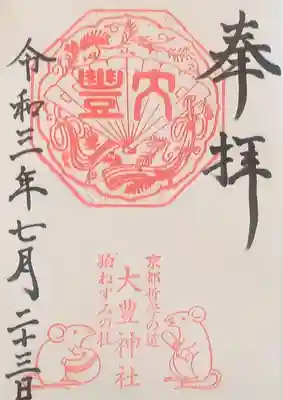 奉拝
大豐
京都哲学の道
大豊神社
狛ねずみの社
令和三年七月二十三日